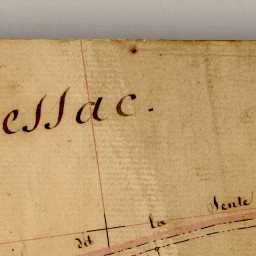 essac.
dit la Sente